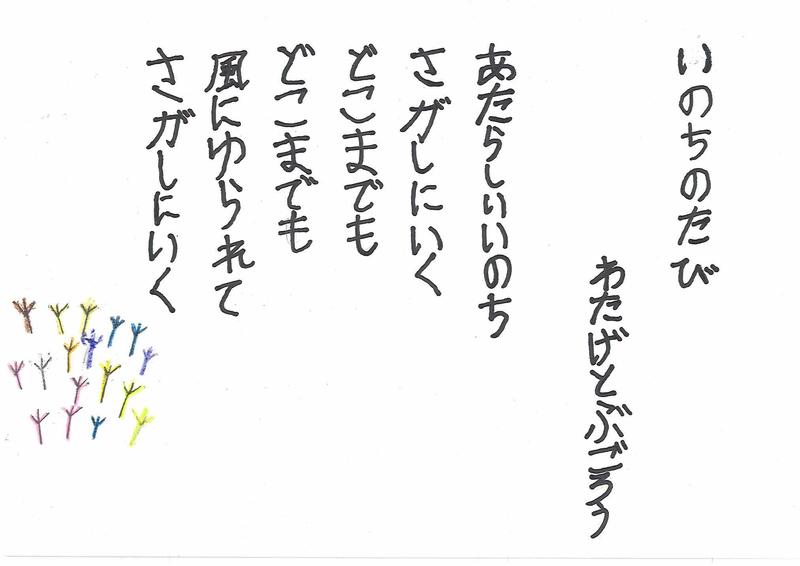 いのちのたび
わたげとぶごろう
あたらしいいのち
さがしにいく
どこまでも
どこまでも
風にゆられて
さがしにいく